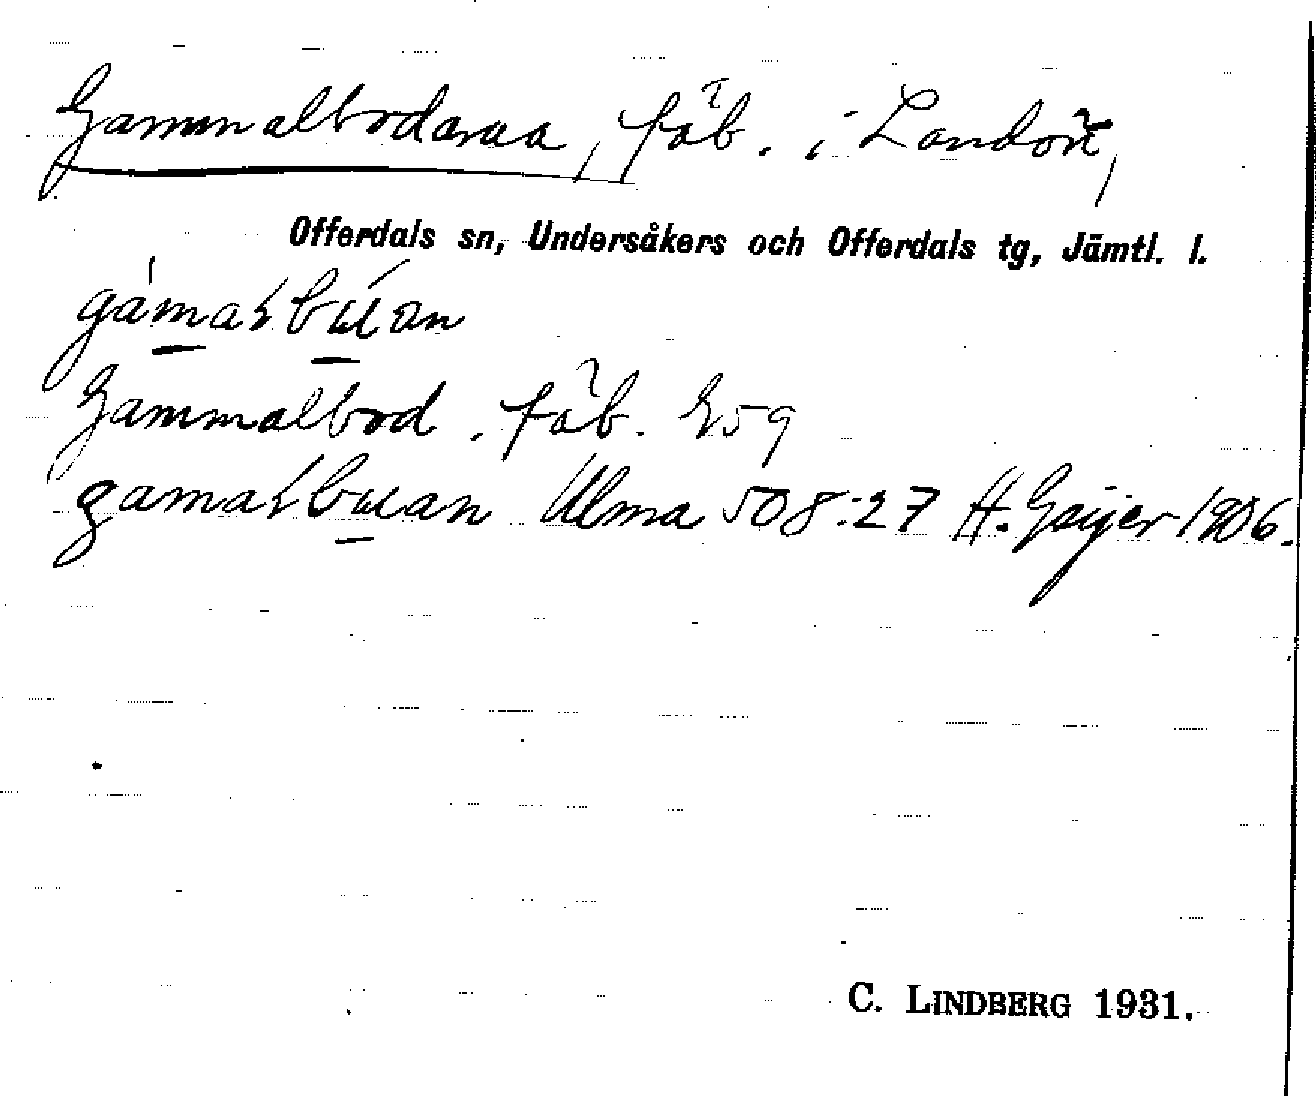 Gammalbodarna, fäb. i Landön,
Offerdals sn, Undersåkers och Offerdals tg, Jämtl. l.
gámaɫbúan
Gammalbod. fäb. G59
gamaɫbuan Ulma 508:27 H. Geijer 1906.
C. LINDBERG 1931.